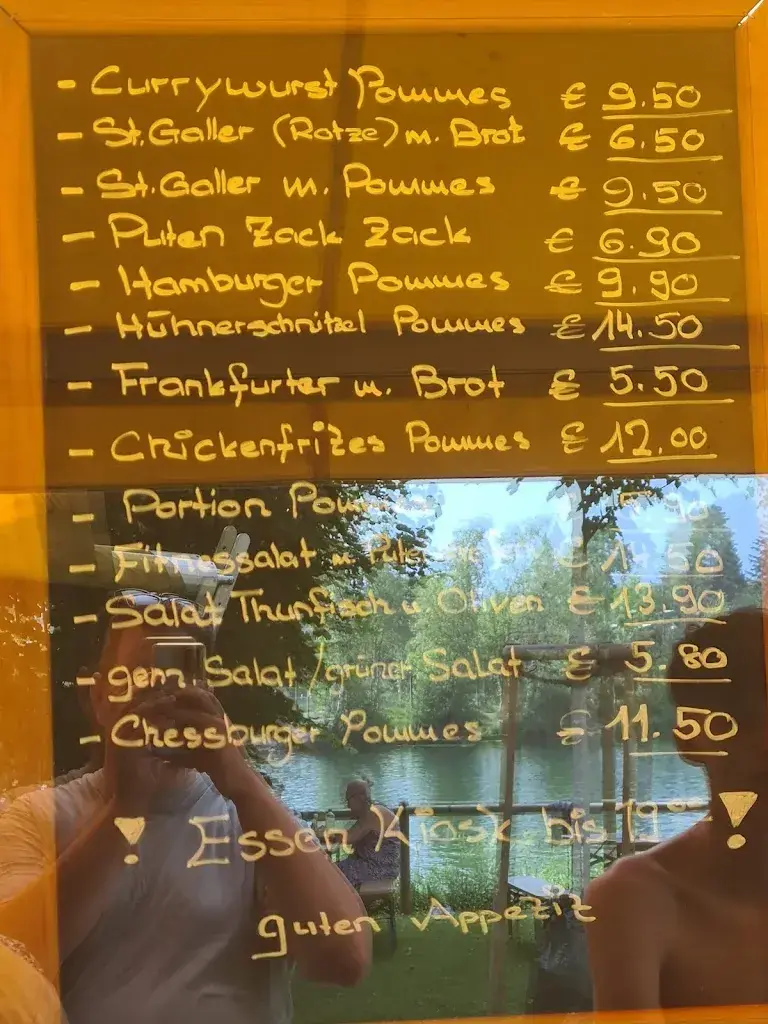 - Currywurst Pommes € 9.50
- St. Galler (Rotze) m. Brot € 6.50
- St. Galler m. Pommes € 9.50
- Puten Zack Zack € 6.90
- Hamburger Pommes € 9.90
- Hühnerschnitzel Pommes € 14.50
- Frankfurter m. Brot € 5.50
- Chickenfrizes Pommes € 12.00
- Portion € 5.90
- Fitnessalat m. Puten € 14.50
- Salat Thunfisch u. Oliven € 13.90
- gem. Salat / grüner Salat € 5.80
- Chessburger Pommes € 11.50
! Essen Kiosk bis 19°° !
guten Appeziz